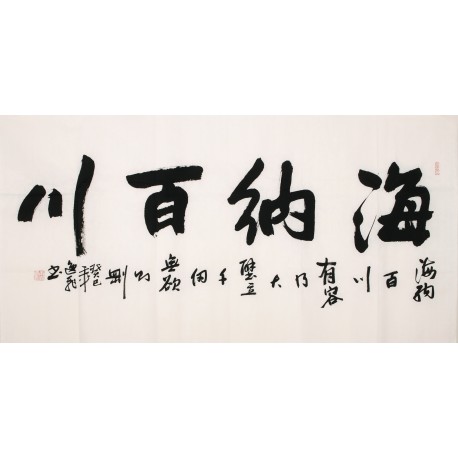 海納百川
海納百川有容乃大壁立千仞無欲則剛
癸巳年 书